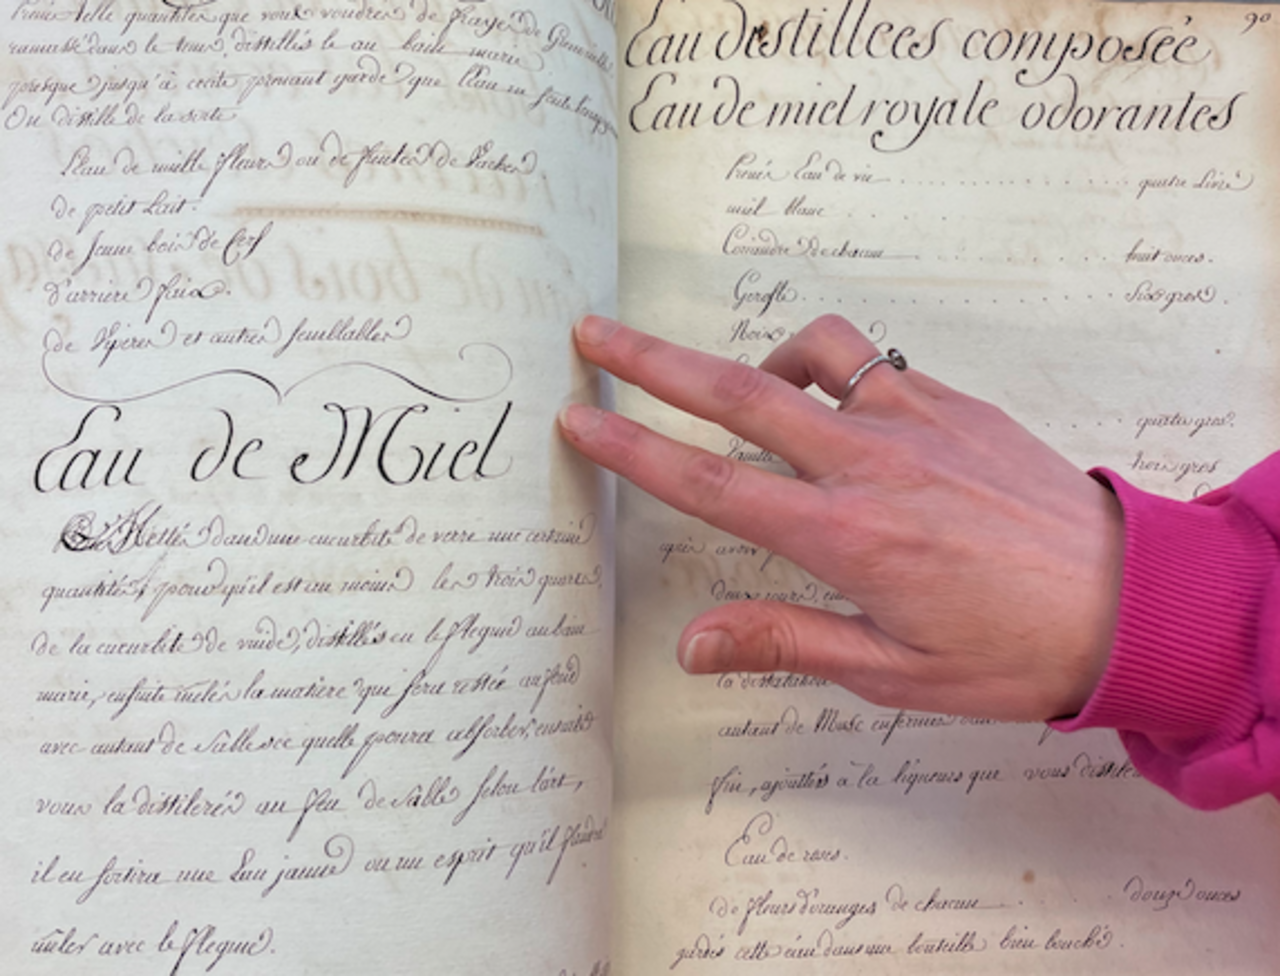 Prenés telle quantités que vous voudrés de frayes de Grenouilles
ramassé dans le tems distillés le au bain marie
presque jusqu'à ce garde que l'Eau ne sente
On distille de la sorte
L'eau de mille fleurs ou de fientes de Vaches
de petit Lait.
de jeune bois de Cerf
d'arriere faix.
de Viperes et autres semblables
Eau de Miel
Mettés dans une cucurbite de verre une certaine
quantités, pour qu'il est au moins les trois quarts,
de la cucurbite de vuide, distillés en le flegme au bain
marie, ensuite melés la matiere qui sera restée au fond
avec autant de sable sec quelle poura absorber, ensuite
vous la distilerés au feu de sable selon l'art,
il en sortira une Eau jaune ou un esprit qu'il faudra
mêler avec le flegme.
90
Eau distillées composée
Eau de miel royale odorantes
Prenés Eau de vie quatre Livre
miel blanc
Coriandre de chacun huit onces.
Gerofle six gros.
Noix
quatre gros.
Vanille trois gros
deux jours, en
la distilation
autant de Musc enfermés dans
fin, ajouttés à la liqueurs que vous distile
Eau de roses.
de fleurs d'oranges de chacun douze onces
gardés cette eau dans une bouteille bien bouché.